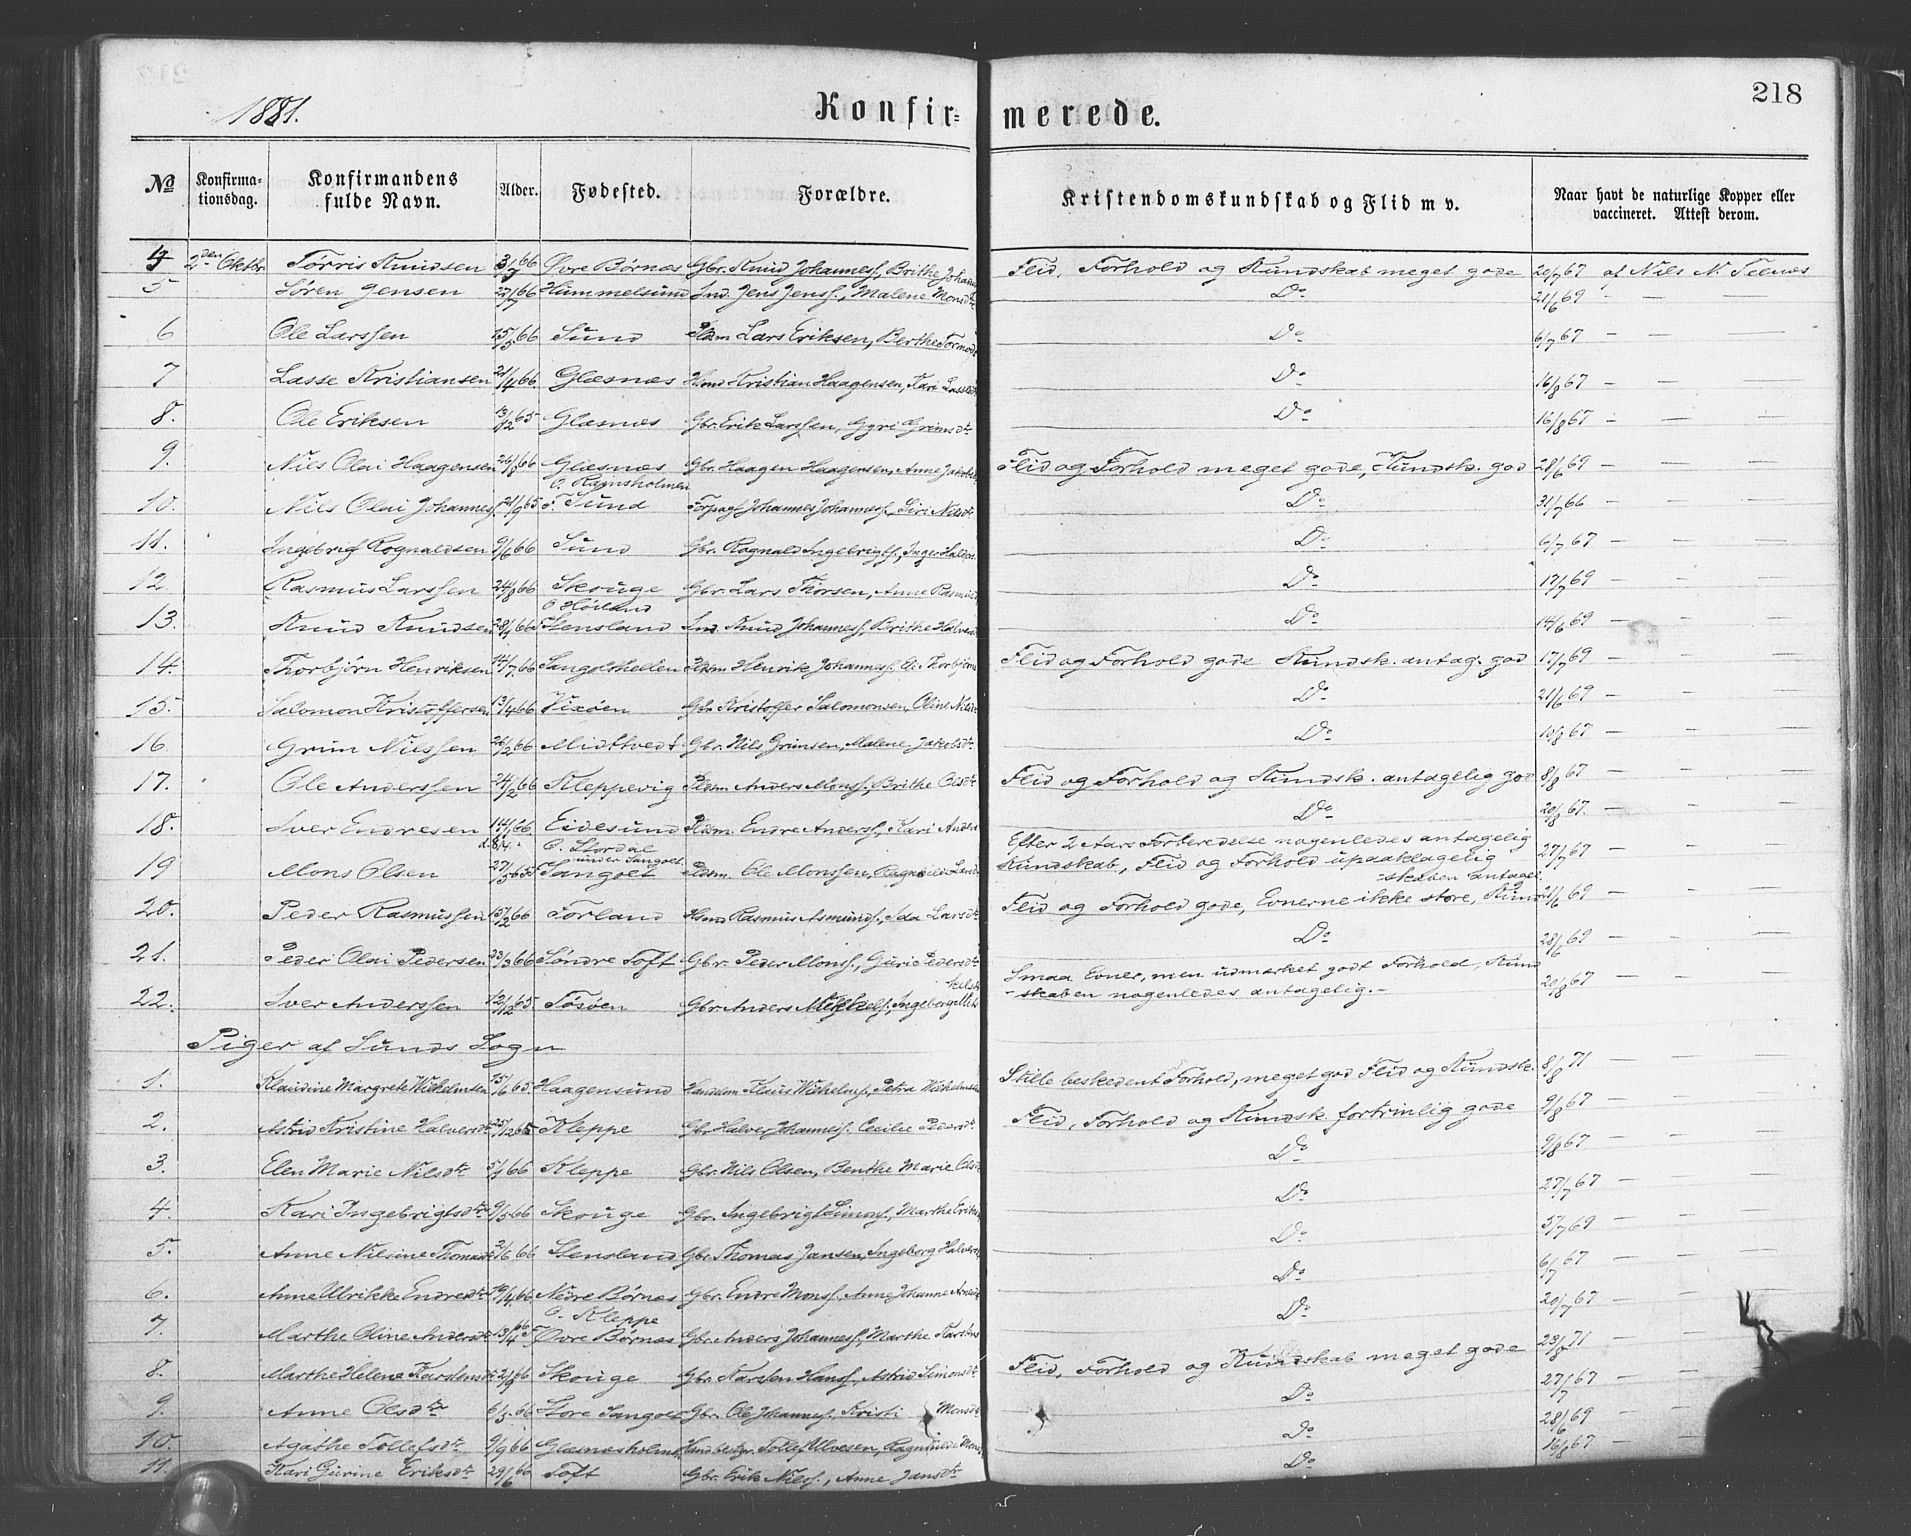 218
1881.
Konfir= merede.
№ Konfirma-tionsdag. Konfirmandens fulde Navn. Alder. Fødested. Forældre. Kristendomskundskab og Flid m v. Naar havt de naturlige Kopper eller vaccineret. Attest derom.
4 2den Oktbr. Tørris Knudsen 3/7 66 Øvre Børnæs Gbr. Knud Johannesf, Brithe Johann Flid, Forhold og Kundskab meget gode 20/7 67 af Nils N. Telnæs
5 Søren Jensen 27/7 66 Hummelsund Ind. Jens Jensf., Malene Monsdtr Do 21/6 69 — — —
6 Ole Larssen 15/5 66 Sund Plsm Lars Eriksen, Berthe Tormodd Do 6/7 67 — — —
7 Lasse Kristiansen 21/4 66 Glæsnæs Hsmd Kristian Haagensen, Kari Lassed Do 16/8 67 — — —
8. Ole Eriksen 13/12 65 Glæsnæs Gbr. Erik Larssen, Gyri Grimsdtr Do 16/8 67 — — —
9. Nils Olai Haagensen 26/8 66 Glæsnæs Gbr. Haagen Haagensen, Anne Jakobsd Flid og Forhold meget gode, Kundsk. god 28/6 69 — — —
10. Nils Olai Johannesf. 21/9 65 O. Ramsholmen F. Sund Forpagt Johannes Johannesf., Siri Nilsdtr Do 31/7 66 — — —
11. Ingebrigt Rognaldsen 9/6 66 Sund Gbr. Rognald Ingebrigtf, Inger Haldon Do 6/7 67 — — —
12. Rasmus Larssen 24/8 66 Skouge Gbr. Lars Thorsen, Anne Rasmusd Do 17/7 69 — — —
13. Knud Knudsen 28/1 66 O Høiland Stensland Ind. Knud Johannesf, Brithe Halvorsd Do 14/6 69 — — —
14. Thorbjørn Henriksen 14/7 66 Sangolthellen Plsm Henrik Johannesf. Thorbjørns Flid og Forhold gode Kundsk. antag. god 17/7 69 — — —
15. Salomon Kristoffersen 13/4 66 Vixøen Gbr. Kristoffer Salomonsen, Oline Nilsdt Do 21/6 69 — — —
16. Grim Nilssen 26/2 66 Midttvedt Gbr. Nils Grimsen, Malene Jakobsdtr Do 10/8 67 — — —
17. Ole Anderssen 24/2 66 Kleppevig Plsm Anders Monsf., Brithe Olsdtr Flid og Forhold og Kundsk. antagelig god 8/8 67 — — —
18. Iver Endresen 14/1 66. Eidesund Plsm. Endre Andersf, Kari Anders Do 20/8 67. — — —
19 Mons Olsen 27/5 65 O. Stordal under Sangolt Sangolt Plsm. Ole Monssen, Ragnhild Lars Efter 2 Aars Forberedelse nogenledes antagelig Kundskab, Flid og Forhold upaaklagelig 27/7 67 — — —
20. Peder Rasmussen 15/2 66 Forland Hsmd Rasmus Asmundf., Ida Larsdt Flid og Forhold gode, Evnerne ikke store, Kund-skaben antagel. 21/6 69 — — —
21. Peder Olai Pedersen 23/3 66 Søndre Toft Gbr. Peder Monsf., Guri Pedersdtr Do 28/6 69 — — —
22. Iver Anderssen 12/12 65. Tøsøen Gbr. Anders Mikkelf, Ingeborg Mikkelsdt Smaa Evner, men udmærket godt Forhold, Kund-skaben nogenledes antagelig. 20/8 67 — — —
Piger af Sunds Sogn
1. Klaudine Margrete Wilhelmsen 15/6 65. Haagensund Handelsm Klaus Wilhelmsf, Petra Wilhelmsen Stille beskedent Forhold, meget god Flid og Kundsk. 8/8 71 — — —
2. Astrid Kristine Halversdtr 25/12 65 Kleppe Gbr Halver Johannesf. Cecilie Pedersdtr Flid, Forhold og Kundsk. fortrinlig gode 9/8 67 — — —
3. Elen Marie Nilsdtr 5/1 66 Kleppe Gbr. Nils Olsen, Benthe Marie Olsd Do 9/8 67 — — —
4. Kari Ingebrigtsdtr 9/5 66 Skouge Gbr. Ingebrigt Simonsf, Marthe Eriksd Do 27/7 67 — — —
5. Anne Nilsine Thomasdt 21/6 66 Stensland Gbr. Thomas Jansen, Ingeborg Halvers Do 5/7 69 — — —
6. Anne Ulrikke Endresdtr 19/4 66 Nedre Børnæs Gbr. Endre Monsf. Anne Johanne Arnedt Do 6/7 67 — — —
7. Marthe Oline Andersdt 13/4 66 O. Kleppe F Øvre Børnæs Gbr. Anders Johannesf., Marthe Karstens Do 20/7 67 — — —
8. Marthe Helene Karstensdtr 2/8 66 Skouge Gbr. Karsten Hansf., Astrid Simonsdt Flid, Forhold og Kundskab meget gode 23/8 71 — —
9. Anne Olsdtr 6/5 66 Store Sangolt Gbr. Ole Johannesf. Kristi Monsdt Do 27/7 67 — —
10. Agathe Tollefsdtr 9/9 66 Glæsnæsholmen Tollef Ulvesen, Ragnhilde Mons Do 28/6 69 — —
11. Kari Gurine Eriksdtr 29/6 66 Toft Gbr. Erik Nilsf., Anne Jansdtr Do 16/8 67 — —